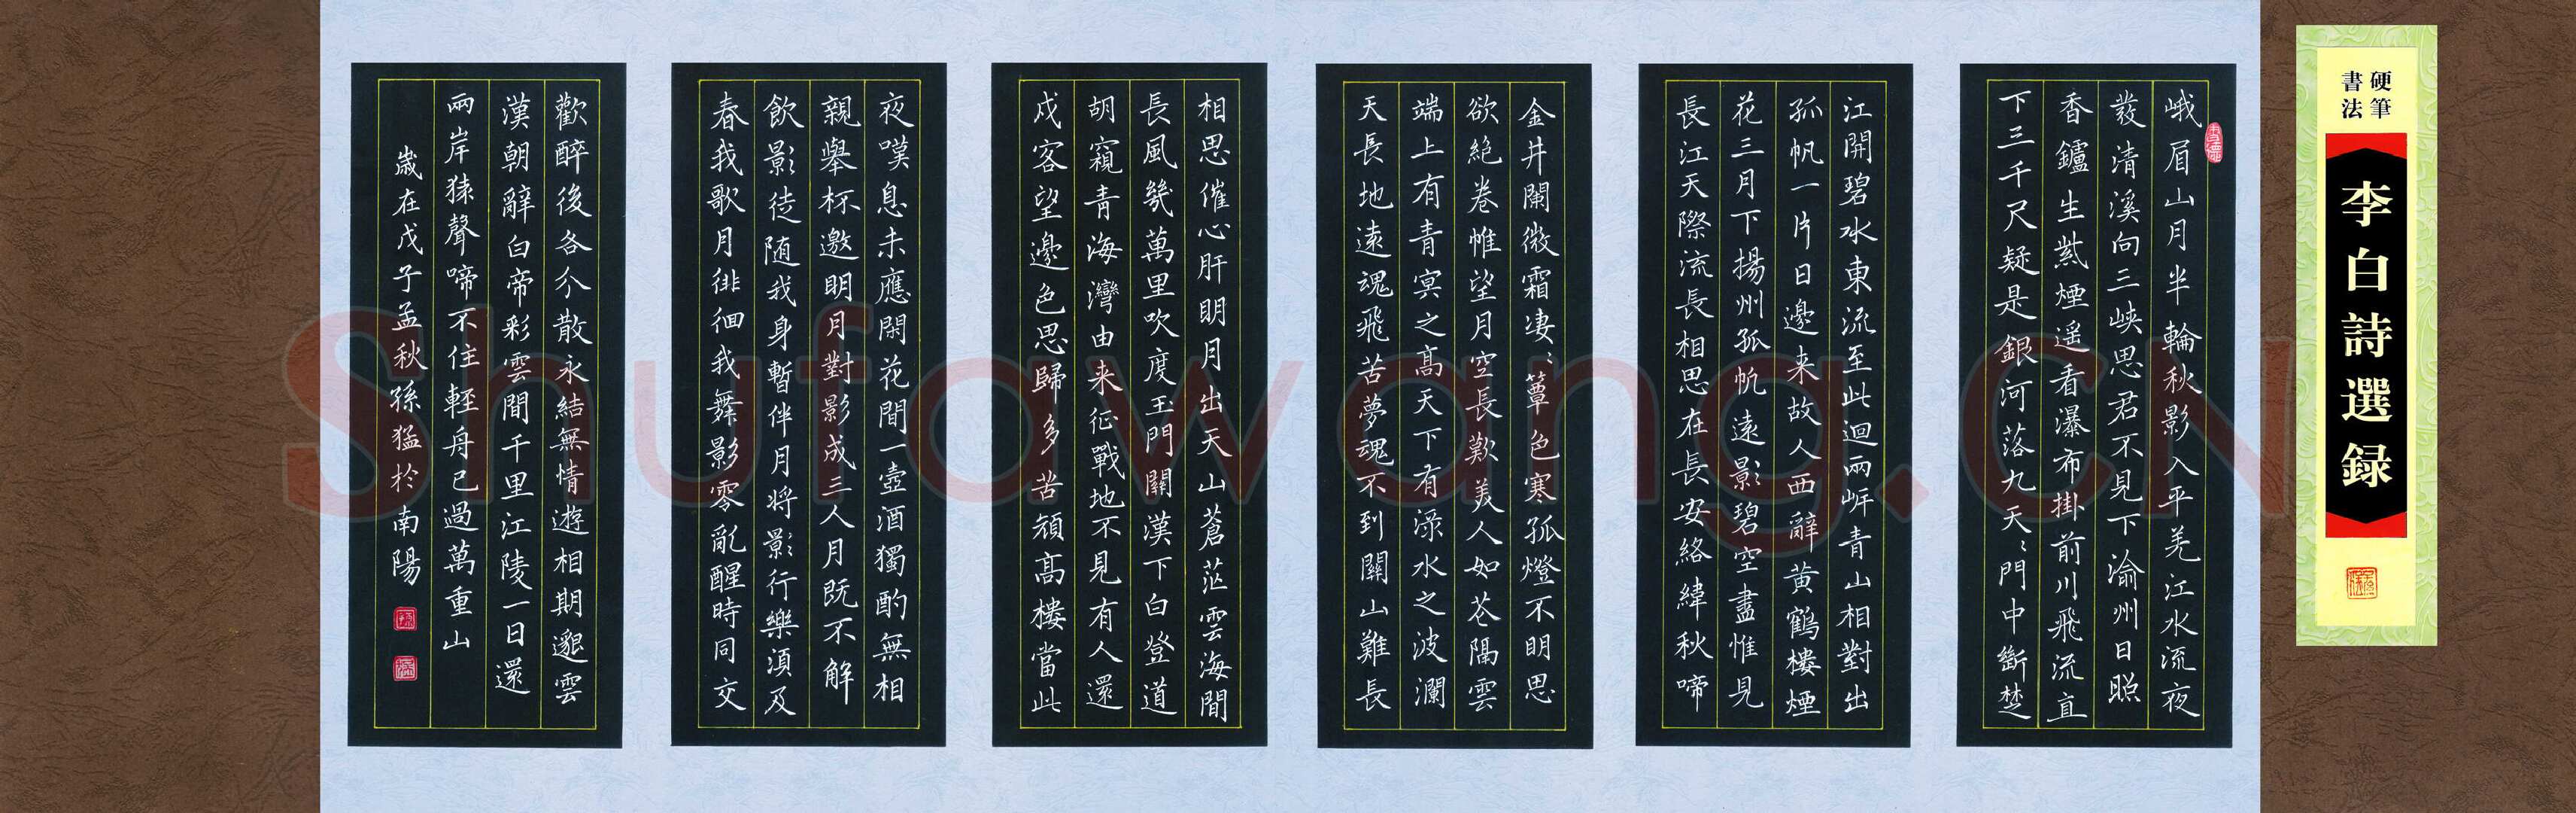 硬筆
書法
李白詩選録
峨眉山月半輪秋影入平羌江水流夜
發清溪向三峽思君不見下渝州日照
香鑪生紫煙遥看瀑布掛前川飛流直
下三千尺疑是銀河落九天〻門中斷楚
江開碧水東流至此迴兩岸青山相對出
孤帆一片日邊来故人西辭黄鶴樓煙
花三月下揚州孤帆遠影碧空盡惟見
長江天際流長相思在長安絡緯秋啼
金井闌微霜凄〻簟色寒孤燈不明思
欲絶卷帷望月空長歎美人如花隔雲
端上有青冥之高天下有渌水之波瀾
天長地遠魂飛苦夢魂不到關山難長
相思催心肝明月出天山蒼茫雲海間
長風幾萬里吹度玉門關漢下白登道
胡窺青海灣由来征戰地不見有人還
戍客望邊色思歸多苦顔高樓當此
夜嘆息未應閑花間一壺酒獨酌無相
親舉杯邀明月對影成三人月既不解
飲影徒随我身暫伴月将影行樂須及
春我歌月徘徊我舞影零亂醒時同交
歡醉後各分散永結無情遊相期邈雲
漢朝辭白帝彩雲間千里江陵一日還
兩岸猿聲啼不住輕舟已過萬重山
歲在戊子孟秋孫猛於南陽
Shufawang.CN